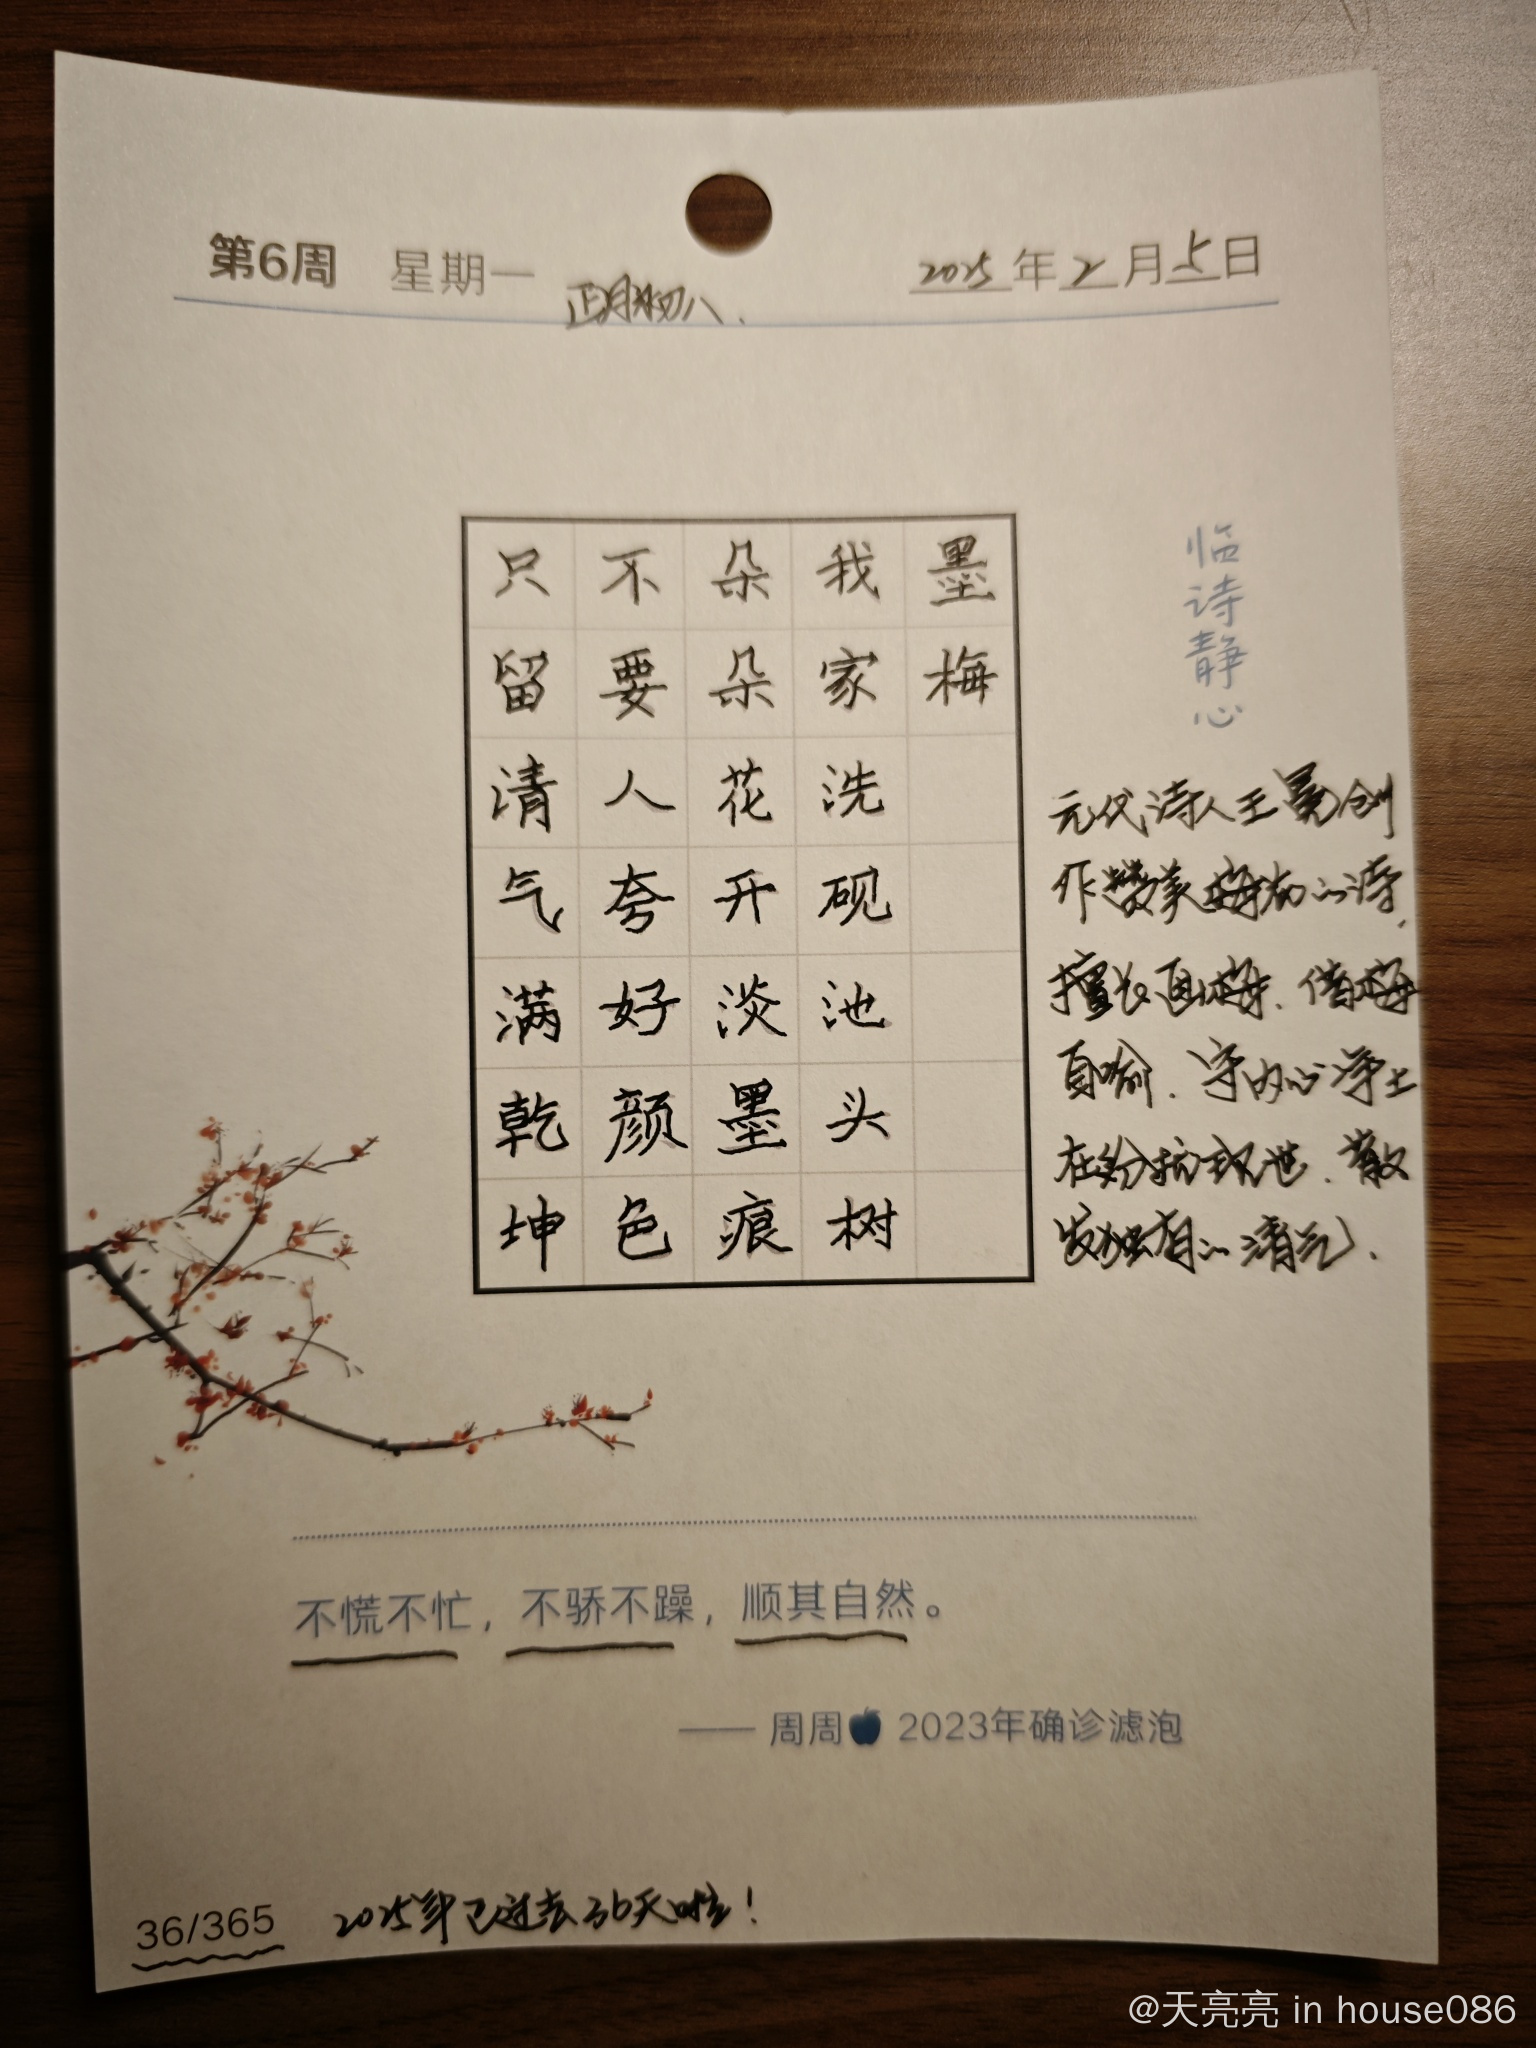 第6周 星期一 正月初八.
2025年2月5日
临诗静心
墨梅
我家洗砚池头树
朵朵花开淡墨痕
不要人夸好颜色
只留清气满乾坤
元代诗人王冕创
作赞美梅花的诗,
擅长画梅. 借梅
自喻. 守内心净土
在纷扰现世. 散
发独有的清气.
不慌不忙，不骄不躁，顺其自然。
—— 周周🍎 2023年确诊滤泡
36/365 2025年已过去36天啦！
@天亮亮 in house086